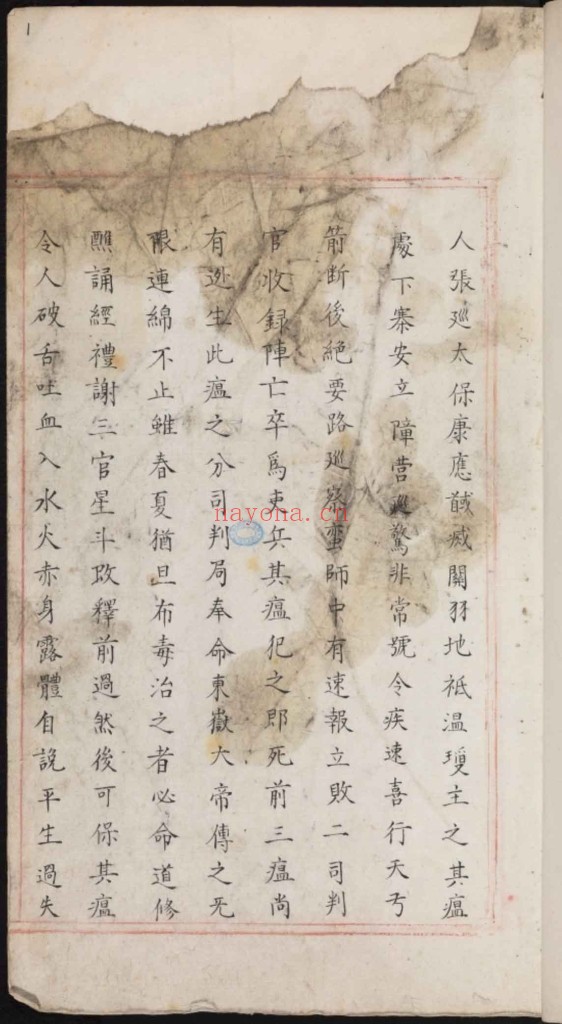 1
人張廵太保康應馘滅關羽地袛温瓊主之其瘟
處下寨安立障營廵驚非常號令疾速喜行天弓
箭斷後絶要路廵察蛮師中有速報立敗二司判
官收録陣亡卒爲吏兵其瘟犯之即死前三瘟尚
有逃生此瘟之分司判局奉命東嶽大帝傳之无
限連綿不止雖春夏猶旦布毒治之者必命道修
醮誦經禮謝三官星斗改釋前過然後可保其瘟
令人破舌吐血入水火赤身露體自說平生過失
nayona.cn